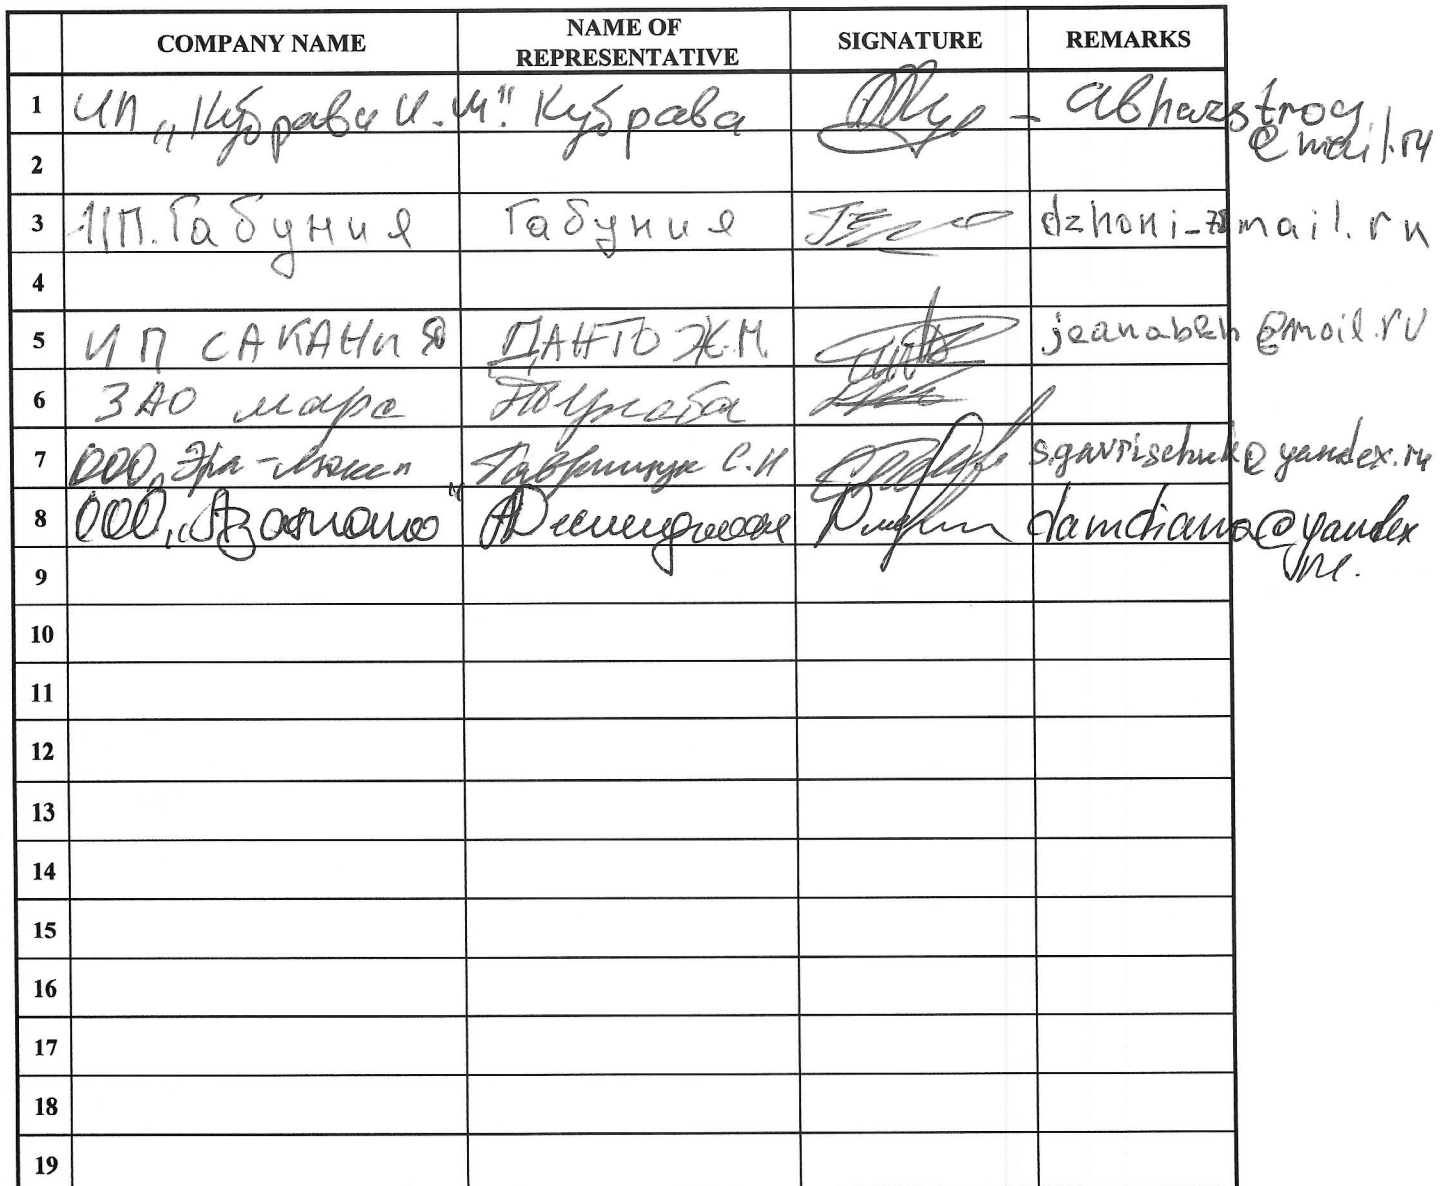 COMPANY NAME NAME OF REPRESENTATIVE SIGNATURE REMARKS
1 ИП „Кубрава И.М." Кубрава - abhazstroy
@mail.ru
2
3 ИП. Габуния Габуния dzhoni_78mail.ru
4
5 ИП САКАНИЯ ПАНТО Ж.М. jeanabkh@mail.ru
6 ЗАО марс
7 ООО „Эра- Гаврищук С.И s.gavrischuk@yandex.ru
8 ООО damchiana@yandex
ru.
9
10
11
12
13
14
15
16
17
18
19